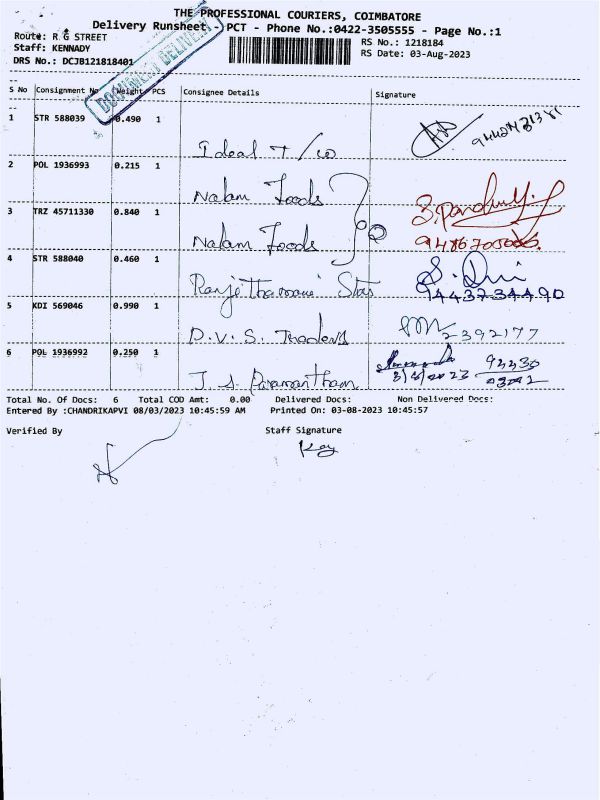 THE PROFESSIONAL COURIERS, COIMBATORE
Delivery Runsheet - PCT - Phone No.:0422-3505555 - Page No.:1
Route: R G STREET
RS No.: 1218184
Staff: KENNADY
RS Date: 03-Aug-2023
DRS No.: DCJB121818401
DOCUMENT DELIVERY
S No Consignment No Weight PCS Consignee Details Signature
1 STR 588039 0.490 1
Ideal T/co
2 POL 1936993 0.215 1
Nalam Foods
3 TRZ 45711330 0.840 1
Nalam Foods
4 STR 588040 0.460 1
9443734490
5 KDI 569046 0.990 1
D.V.S. Traders 2392177
6 POL 1936992 0.250 1
3/8/2023 94430
Total No. Of Docs: 6 Total COD Amt: 0.00 Delivered Docs: Non Delivered Docs:
Entered By :CHANDRIKAPVI 08/03/2023 10:45:59 AM Printed On: 03-08-2023 10:45:57
Verified By Staff Signature